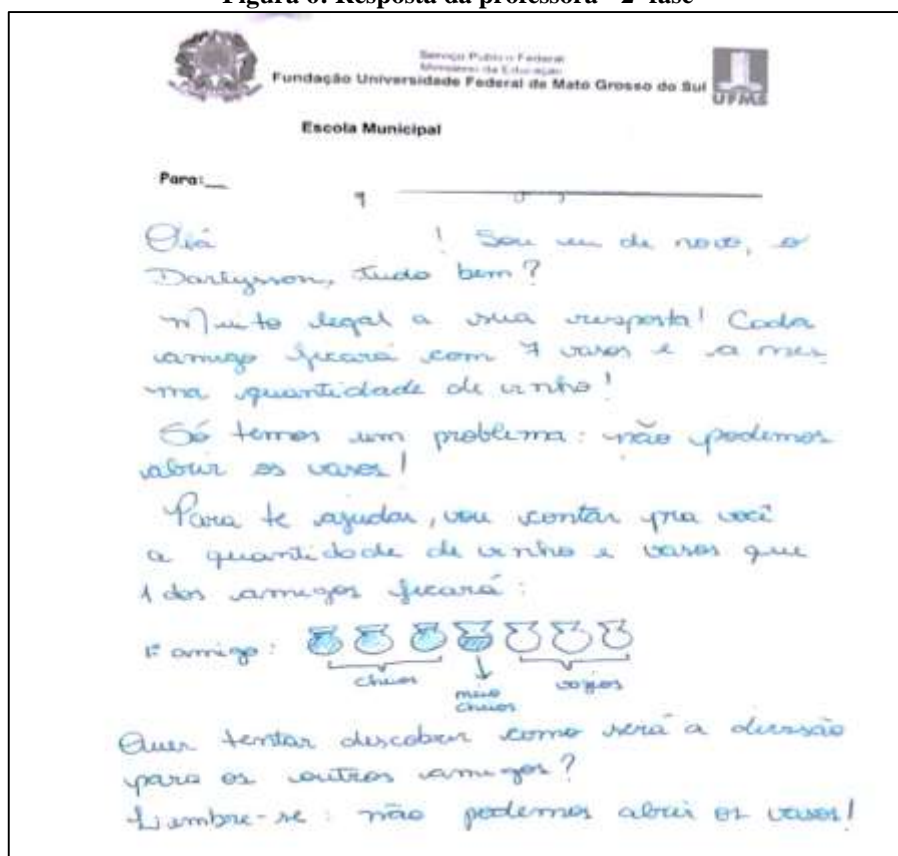 Figura 6: Resposta da professora – 2ª fase
Serviço Público Federal
Ministério da Educação
Fundação Universidade Federal de Mato Grosso do Sul
UFMS
Escola Municipal
Para:__
Olá ! Sou eu de novo, o
Darlysson, tudo bem?
Muito legal a sua resposta! Cada
amigo ficará com 7 vasos e a mes-
ma quantidade de vinho!
Só temos um problema: não podemos
abrir os vasos!
Para te ajudar, vou contar pra você
a quantidade de vinho e vasos que
1 dos amigos ficará:
1º amigo:
cheios
meio
cheios
vazios
Quer tentar descobrir como será a divisão
para os outros amigos?
Lembre-se: não podemos abrir os vasos!